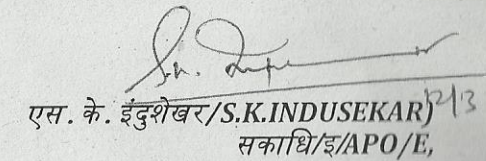 एस. के. इंदुशेखर/S.K.INDUSEKAR)
सकाधि/इ/APO/E,